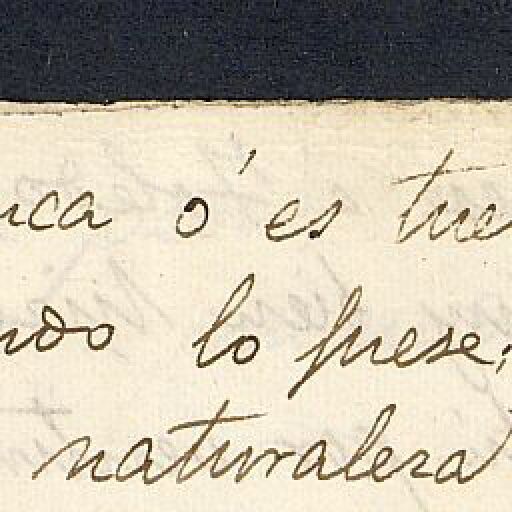 uca ó es tue
ndo lo fuese,
naturaleza